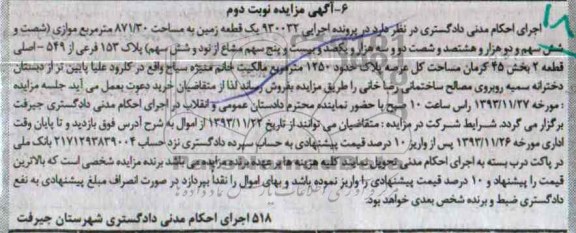 ۶-آگهی مزایده نوبت دوم
اجرای احکام مدنی دادگستری در نظر دارد در پرونده اجرایی ۹۳۰۰۳۲ یک قطعه زمین به مساحت ۸۷۱/۳۰ مترمربع موازی (شصت و
شش سهم و دو هزار و هشتصد و شصت دو و سه هزار و یکصد و بیست و پنج سهم مشاع از نود و شش سهم) پلاک ۱۵۳ فرعی از ۵۴۹ - اصلی
قطعه ۲ بخش ۴۵ کرمان مساحت کل عرصه پلاک حدود ۱۲۵۰ مترمربع مالکیت خانم منیژه سیاح واقع در کلرود علیا پایین تر از دبستان
دخترانه سمیه روبروی مصالح ساختمانی رضا خانی را طریق مزایده بفروش رساند لذا از متقاضیان خرید دعوت بعمل می آید. جلسه مزایده
: مورخه ۱۳۹۳/۱۱/۲۷ راس ساعت ۱۰ صبح با حضور نماینده محترم دادستان عمومی و انقلاب در اجرای احکام مدنی دادگستری جیرفت
برگزار می گردد. شرایط شرکت در مزایده : متقاضیان می توانند از تاریخ ۱۳۹۳/۱۱/۲۲ از اموال به شرح آدرس فوق بازدید و تا پایان وقت
اداری مورخه ۱۳۹۳/۱۱/۲۶ پس از واریز ۱۰ درصد قیمت پیشنهادی به حساب سپرده دادگستری نزد حساب ۲۱۷۱۲۹۳۸۳۹۰۰۴ بانک ملی
در پاکت درب بسته به اجرای احکام مدنی تحویل نمایند کلیه هزینه ها بر عهده برنده مزایده می باشد. برنده مزایده شخصی است که بالاترین
قیمت را پیشنهاد و ۱۰ درصد قیمت پیشنهادی را واریز نموده باشد و بهای اموال را نقداً بپردازد در صورت انصراف مبلغ پیشنهادی به نفع
دادگستری ضبط و برنده شخص بعدی خواهد بود.
۵۱۸ اجرای احکام مدنی دادگستری شهرستان جیرفت